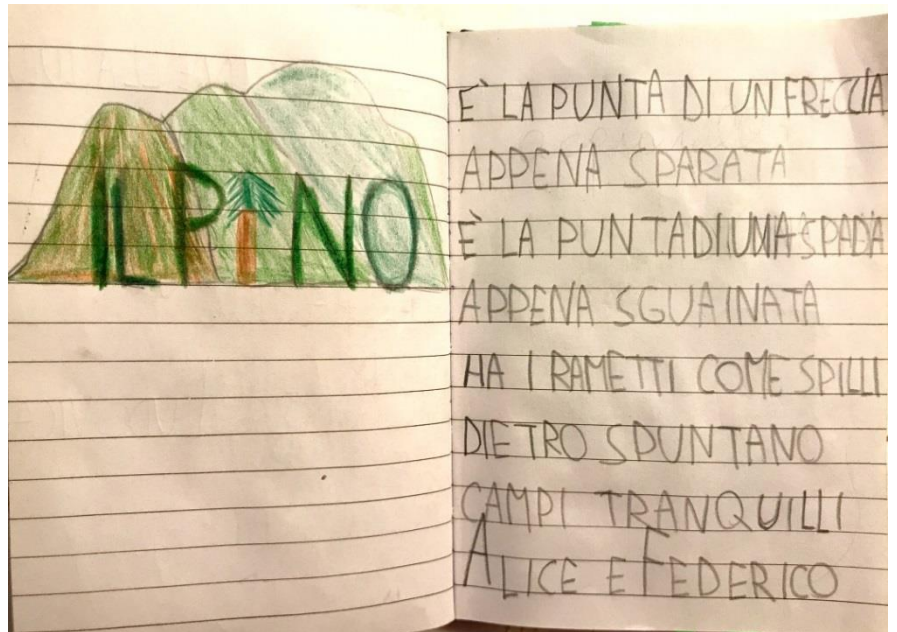 IL PINO
È LA PUNTA DI UN FRECCIA
APPENA SPARATA
È LA PUNTA DI UNA SPADA
APPENA SGUAINATA
HA I RAMETTI COME SPILLI
DIETRO SPUNTANO
CAMPI TRANQUILLI
ALICE E FEDERICO